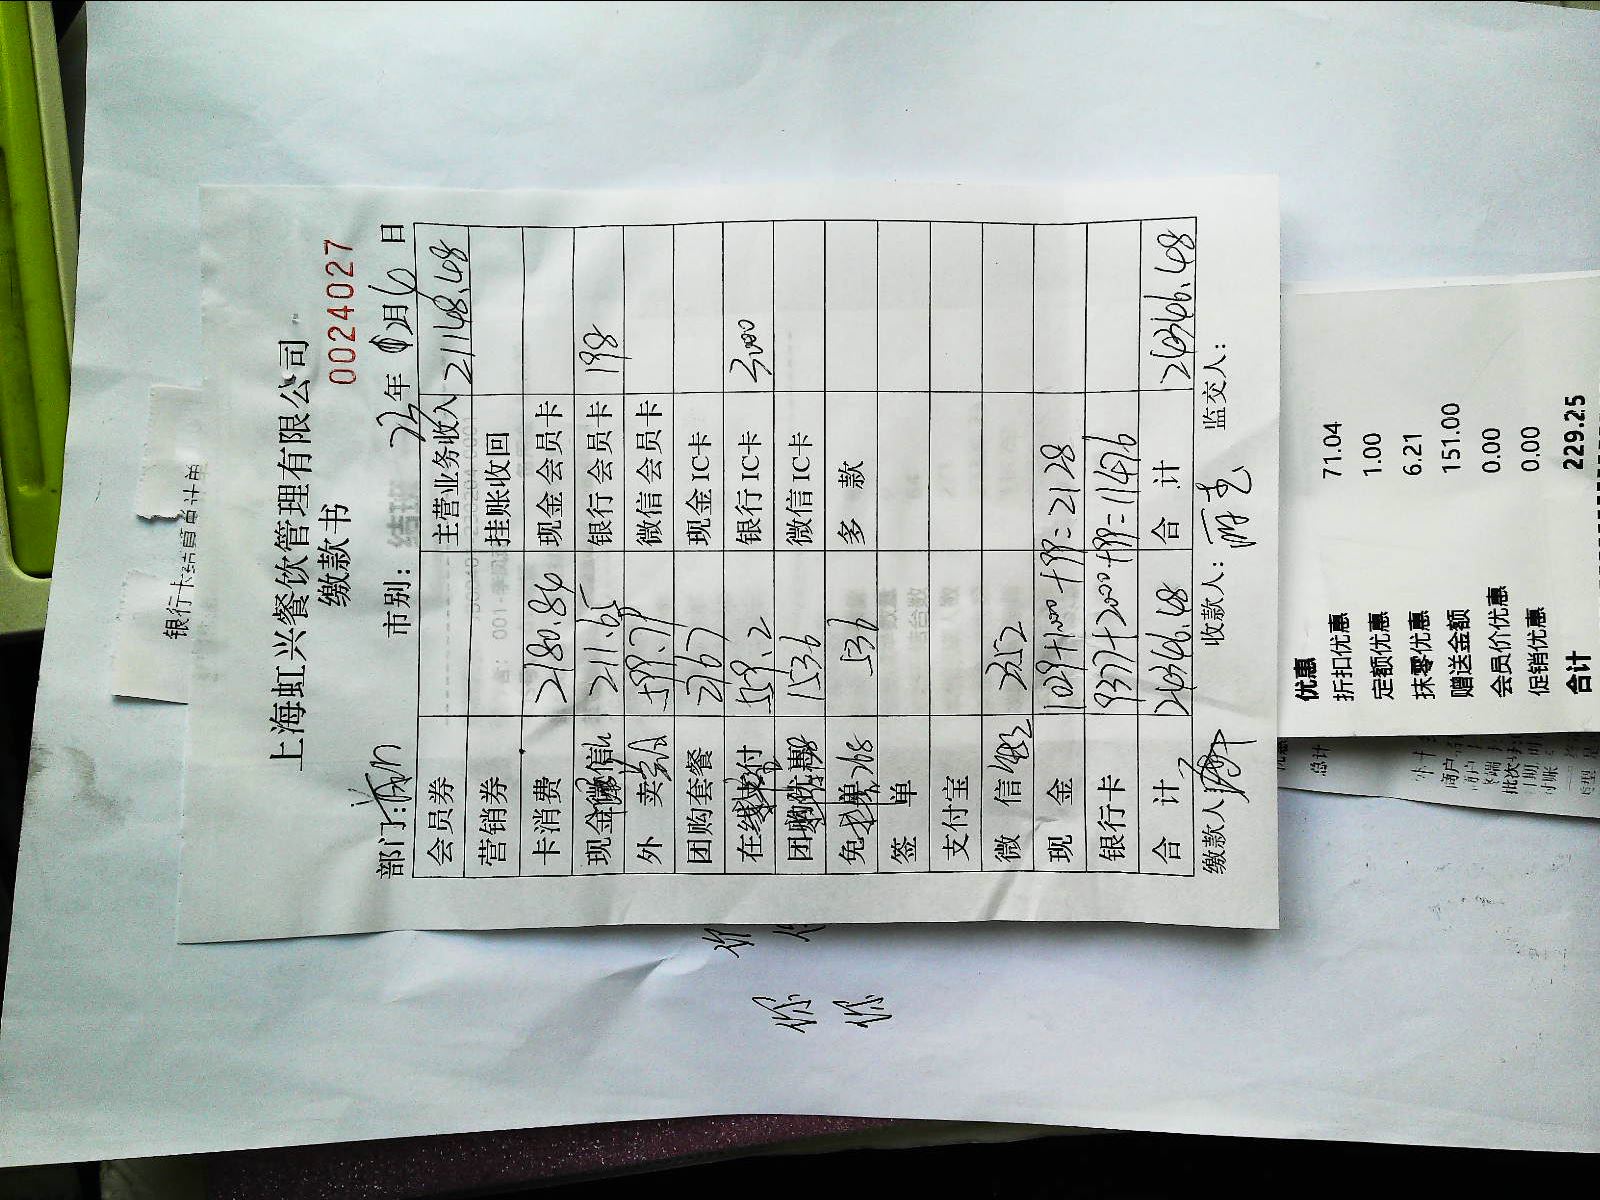 银行卡结算单计单
上海虹兴餐饮管理有限公司
缴款书
0024027
部门: 市别: 23年 月6日
会员券 主营业务收入 21148.48
营销券 挂账收回
卡消费 2180.84 现金会员卡
现金微信 211.65 银行会员卡 198
外卖 599.71 微信会员卡
团购套餐 2167 现金IC卡
在线支付 559.2 银行IC卡 3000
团购优惠 1536 微信IC卡
免单 268 536 多款
签单
支付宝
微信 3352
现金 1029+1000+99=2128
银行卡 9377+2000+99=11476
合计 24346.48 合计 24346.48
缴款人 收款人: 监交人:
优惠
折扣优惠 71.04
定额优惠 1.00
抹零优惠 6.21
赠送金额 151.00
会员价优惠 0.00
促销优惠 0.00
合计 229.25
总计
小计
你
你